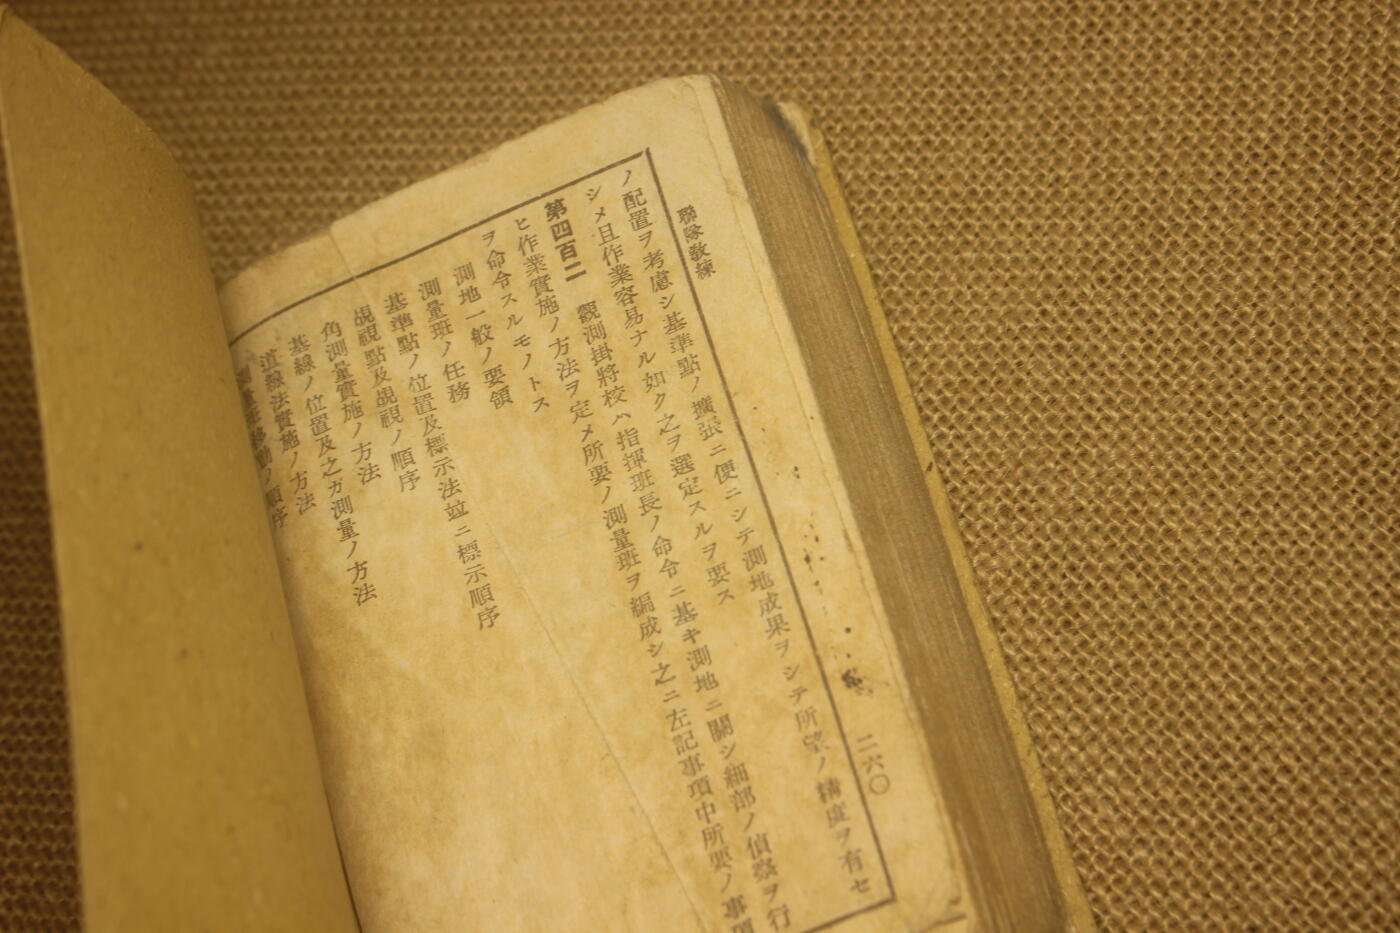 聯隊敎練
二六〇
ノ配置ヲ考慮シ基準點ノ擴張ニ便ニシテ測地成果ヲシテ所望ノ精度ヲ有セ
シメ且作業容易ナル如ク之ヲ選定スルヲ要ス
第四百二 觀測掛將校ハ指揮班長ノ命令ニ基キ測地ニ關シ細部ノ偵察ヲ行
ヒ作業實施ノ方法ヲ定メ所要ノ測量班ヲ編成シ之ニ左記事項中所要ノ事項
ヲ命令スルモノトス
測地一般ノ要領
測量班ノ任務
基準點ノ位置及標示法竝ニ標示順序
覘視點及覘視ノ順序
角測量實施ノ方法
基線ノ位置及之ガ測量ノ方法
道線法實施ノ方法
移動ノ順序